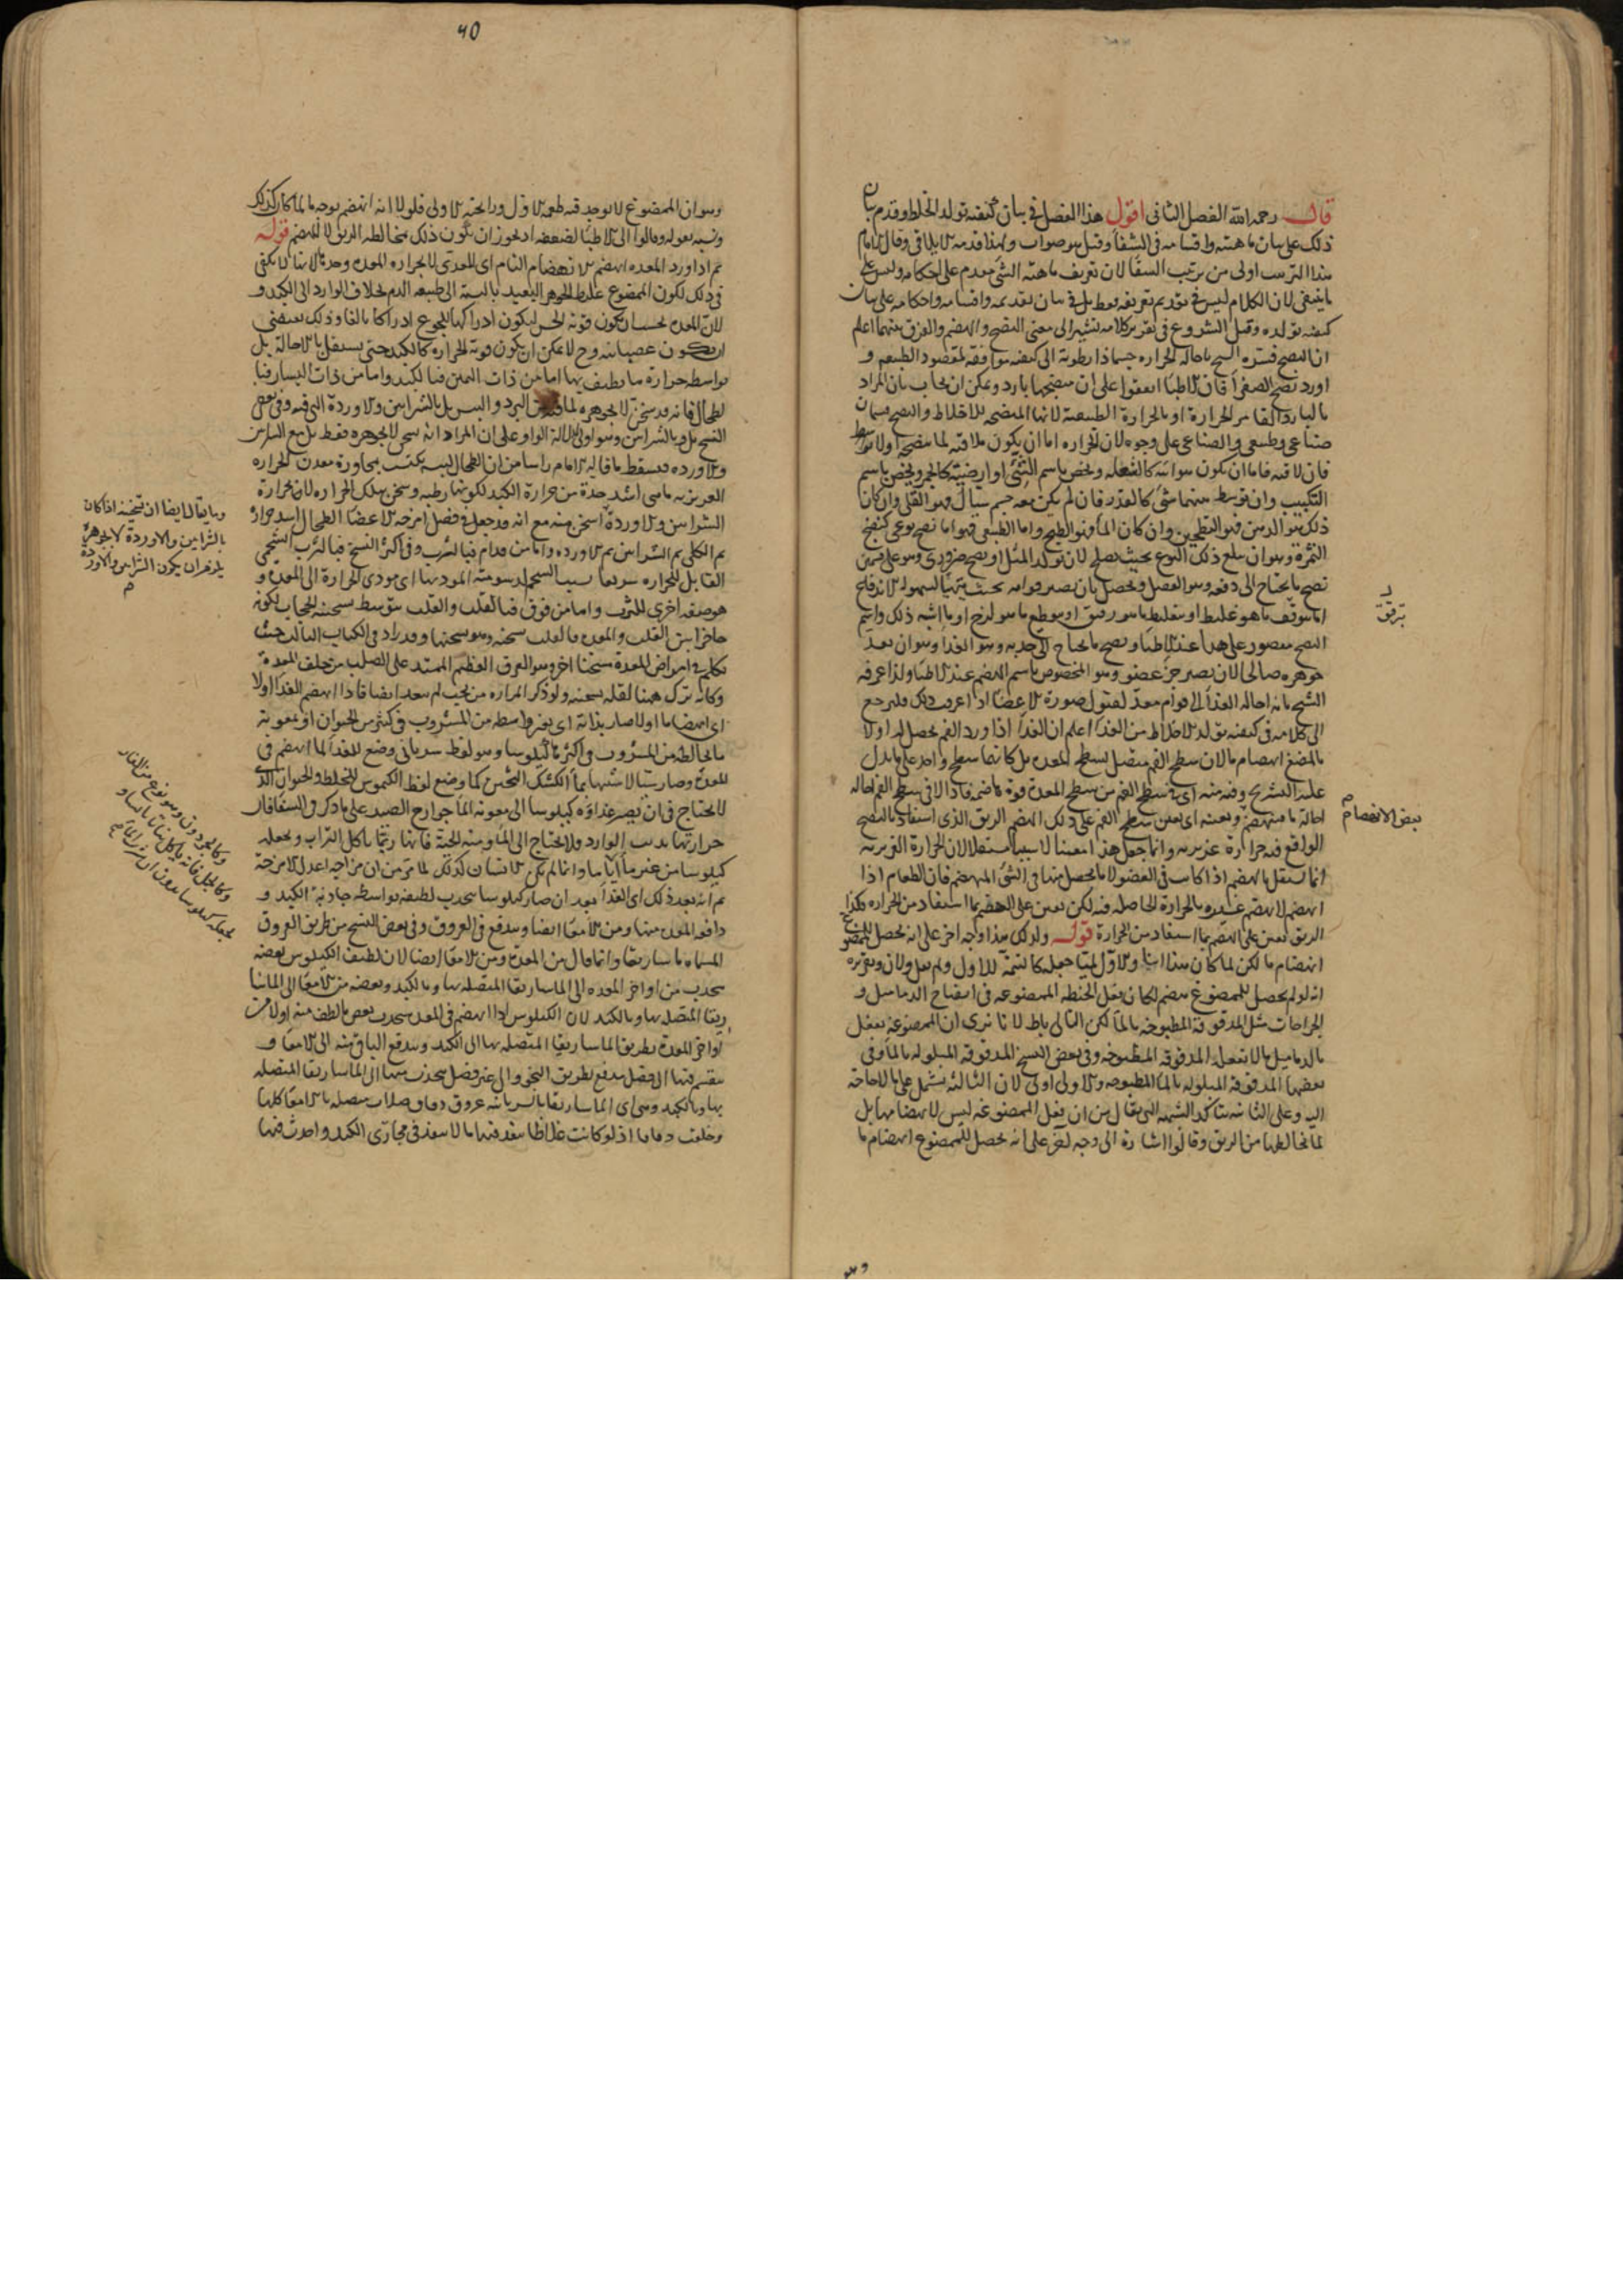 قال رحمه الله الفصل الثاني اقول هذا الفصل في بيان كيفية تولد الخلط وقدم بيان
ذلك على بيان ماهيته واقسامه في الشفا وقيل هو صواب ولهذا قدمه الايلاقي وقال الامام
هذا الترتيب اولى من ترتيب الشفا لان تعريف ماهية الشي مقدم على احكامه وليس على
ما ينبغي لان الكلام ليس في تقديم تعريفه فقط بل في بيان تقديمه واقسامه واحكامه على بيان
كيفية تولده وقبل الشروع في تقرير كلامه نشير الى معنى النضج والهضم والفرق بينهما اعلم
ان النضج فسره الشيخ باحالة الحرارة جسما ذا رطوبة الى كيفية موافقة لمقصود الطبيعة و
اورد نضج الصفرا فان الاطبا اتفقوا على ان منضجها بارد ويمكن ان يجاب بان المراد
بالبارد القامر الحرارة او بالحرارة الطبيعية لانها المنضجة للاخلاط والنضج قسمان
صناعي وطبيعي والصناعي على وجوه لان الحرارة اما ان يكون ملاقية لما ينضجه اولا بتوسط
فان لاقته فاما ان يكون هوائية كالشعلة ويخص باسم الشي او ارضية كالجمر ويخص باسم
التكبيب وان توسط بينهما شي كالقدر فان لم يكن معه جسم سيال فهو القلي وان كان
ذلك هو الدهن فهو التطجين وان كان الما فهو الطبخ واما الطبيعي فهو اما نضج نوعي كنضج
الثمرة وهو ان يبلغ ذلك النوع بحيث يصلح لان تولد المثل او نضج ضروري وهو على قسمين
نضج ما يحتاج الى دفعه وهو الفضل ويحصل بان يصير قوامه بحيث يتهيا لسهولة الاندفاع
اما بترقيق ما هو غليظ او بتغليظ ما هو رقيق او بتقطيع ما هو لزج او ما اشبه ذلك واسم
النضج مقصور على هذا عند الاطبا ونضج ما يحتاج الى جذبه وهو الغذا وهو ان يعد
جوهره صالحا لان يصير جزء عضو وهو المخصوص باسم الهضم عند الاطبا ولذا عرفه
الشيخ بانه احالة الغذا الى قوام معد لقبول صورة الاعضا اذا عرفت ذلك فلنرجع
الى كلامه في كيفية تولد الاخلاط من الغذا اعلم ان الغذا اذا ورد الفم يحصل له اولا
بالمضغ انهضام ما لان سطح الفم متصل بسطح المعدة بل كانهما سطح واحد على ما يدل
عليه التشريح وفيه منه اي في سطح الفم من سطح المعدة قوة هاضمة فاذا لاقى سطح الفم احاله
احالة ما فينهضم ويعينه اي يعين سطح الفم على ذلك الهضم الريق الذي استفاد بالنضج
الواقع فيه حرارة غريزية وانما جعل هذا معينا لا سببا مستقلا لان الحرارة الغريزية
انما تستقل بالهضم اذا كانت في العضو لا ما يحصل منها في الشي المنهضم فان الطعام اذا
انهضم لا يهضم غيره بالحرارة الحاصلة فيه لكن يعين على الهضم بما استفاد من الحرارة وكذا
الريق يعين على الهضم بما استفاد من الحرارة قوله ولذلك هذا وجه اخر على انه يحصل للممضوغ
انهضام ما لكن لما كان هذا انيا والاول لميا جعله كالتتمة للاول ولم يقل ولان وتقريره
انه لو لم يحصل للممضوغ هضم لكان يفعل الحنطة الممضوغة في انضاج الدماميل و
الجراحات مثل المدقوقة المطبوخة بالما لكن التالي باطل لانا نرى ان الممضوغة تفعل
بالدماميل ما لا تفعله المدقوقة المطبوخة وفي بعض النسخ المدقوقة المبلولة بالما وفي
بعضها المدقوقة المبلولة بالما المطبوخة والاولى اولى لان الثالثة تشتمل على ما لا حاجة
اليه وعلى الثانية تتاكد الشبهة التي تقال من ان فعل الممضوغة ليس لانهضامها بل
لما يخالطها من الريق وقالوا اشارة الى وجه اخر على انه يحصل للممضوغ انهضام ما
ترقيق
بعض الانهضام
40
وهو ان الممضوغ لا يوجد فيه طعمه الاول ورائحته الاولى فلولا انه انهضم بوجه ما لما كان كذلك
ونبه بقوله وقالوا الى الاطبا لضعفه اذ يجوز ان يكون ذلك بمخالطة الريق لا للهضم قوله
ثم اذا ورد المعدة انهضم الانهضام التام اي المعدي لا بحرارة المعدة وحدها لانها لا تكفي
في ذلك لكون الممضوغ غليظ الجوهر البعيد بالنسبة الى طبيعة الدم بخلاف الوارد الى الكبد و
لان المعدة يجب ان يكون قوية الحس ليكون ادراكها للجوع ادراكا بالغا وذلك يقتضي
ان يكون عصبانية وح لا يمكن ان يكون قوية الحرارة كالكبد حتى يستقل بالاحالة بل
بواسطة حرارة ما يطيف بها اما من ذات اليمين فبالكبد واما من ذات اليسار فبا
لطحال فانه قد سخن لا بجوهره لما فيه من البرد واليبس بل بالشرايين والاوردة التي فيه وفي بعض
النسخ بل وبالشرايين وهو اولى لدلالة الواو على ان المراد انه يسخن لا بجوهره فقط بل مع الشرايين
والاوردة فيسقط ما قاله الامام راسا من ان الطحال ليس يكتسب بمجاورة معدن الحرارة
الغريزية ما هي اشد حدة من حرارة الكبد لكونها رطبة وسخن بتلك الحرارة لان حرارة
الشرايين والاوردة اسخن منه مع انه قد جعل في فصل امزجة الاعضا الطحال اشد حرارة
ثم الكلى ثم الشرايين ثم الاوردة واما من قدام فبالثرب وفي اكثر النسخ فبالثرب الشحمي
القابل للحرارة سريعا بسبب الشحم لدسومته المودية اي مودي الحرارة الى المعدة و
هو صفة اخرى للثرب واما من فوق فبالقلب والقلب بتوسط تسخينه للحجاب لكونه
حاجزا بين القلب والمعدة فالقلب يسخنه وهو يسخنها وقد زاد في الكتاب الثالث حيث
تكلم في امراض المعدة مسخنا اخر وهو العرق العظيم الممتد على الصلب من خلف المعدة
وكانه ترك ههنا لقلة تسخينه ولو ذكر المرارة من تحت لم يبعد ايضا فاذا انهضم الغذا اولا
اي انهضاما اولا صار بذاته اي بغير واسطة من المشروب في كثير من الحيوان او بمعونة
ما يخالطه من المشروب في اكثرها كيلوسا وهو لفظ سرياني وضع للغذا لما انهضم في
المعدة وصار شبيها بماء الكشك الثخين كما وضع لفظ الكيموس للخلط والحيوان الذي
لا يحتاج في ان يصير غذاؤه كيلوسا الى معونة الما جوارح الصيد على ما ذكر في الشفا فان
حرارتها تذيب الوارد ولا يحتاج الى الما ومنه الحية فانها ربما ياكل التراب ويجعله
كيلوسا من غير ما اياما وانما لم يكن الانسان كذلك لما مر من ان مزاجه اعدل الامزجة
ثم انه بعد ذلك اي الغذا بعد ان صار كيلوسا ينجذب لطيفه بواسطة جاذبة الكبد و
دافعة المعدة منها ومن الامعا ايضا ويندفع في العروق وفي بعض النسخ من طريق العروق
المسماة ماساريقا وانما قال من المعدة ومن الامعا ايضا لان لطيف الكيلوس بعضه
ينجذب من اواخر المعدة الى الماساريقا المتصلة بها وبالكبد وبعضه من الامعا الى الماسا
ريقا المتصلة بها وبالكبد لان الكيلوس اذا انهضم في المعدة ينجذب بعض ما لطف منه اولا من
اواخر المعدة بطريق الماساريقا المتصلة بها الى الكبد ويندفع الباقي منه الى الامعا و
ينقسم فيها الى فضل يندفع بطريق النجو والى غير فضل ينجذب منها الى الماساريقا المتصلة
بها وبالكبد وهي اي الماساريقا بالسريانية عروق دقاق صلاب متصلة بالامعا كلها
وخلقت دقاقا اذ لو كانت غلاظا لنفذ فيها ما لا ينفذ في مجاري الكبد واحدث فيها
وما يقال ايضا ان تسخينه اذا كان
بالشرايين والاوردة لا بجوهره
يلزم ان يكون الشرايين والاوردة
وكالجرذون وهو نوع من الفار
وكالجمل فانه ياكل نباتا يابسا و
يجعله كيلوسا بدون ان يشرب الما